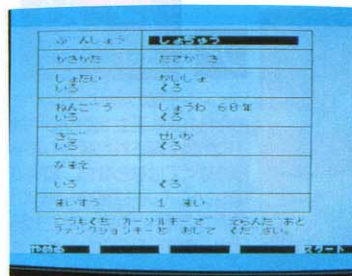 ぶんしょう しょちゅう
かきかた たてがき
しょたい かいしょ
いろ くろ
ねんごう しょうわ 60年
いろ くろ
さこ せいか
いろ くろ
なまえ
いろ くろ
まいすう 1 まい
こうもくを カーソルキーで えらんだ あと
ファンクションキーを おして ください。
やめる スタート